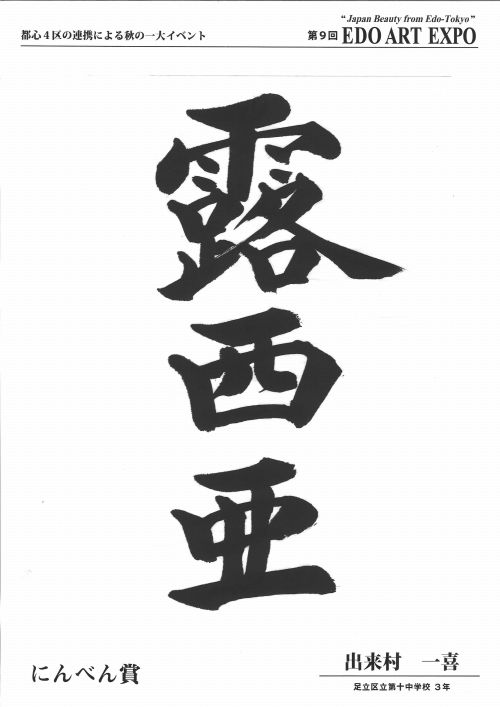 都心4区の連携による秋の一大イベント
"Japan Beauty from Edo-Tokyo"
第9回 EDO ART EXPO
露西亜
にんべん賞
出来村 一喜
足立区立第十中学校 3年